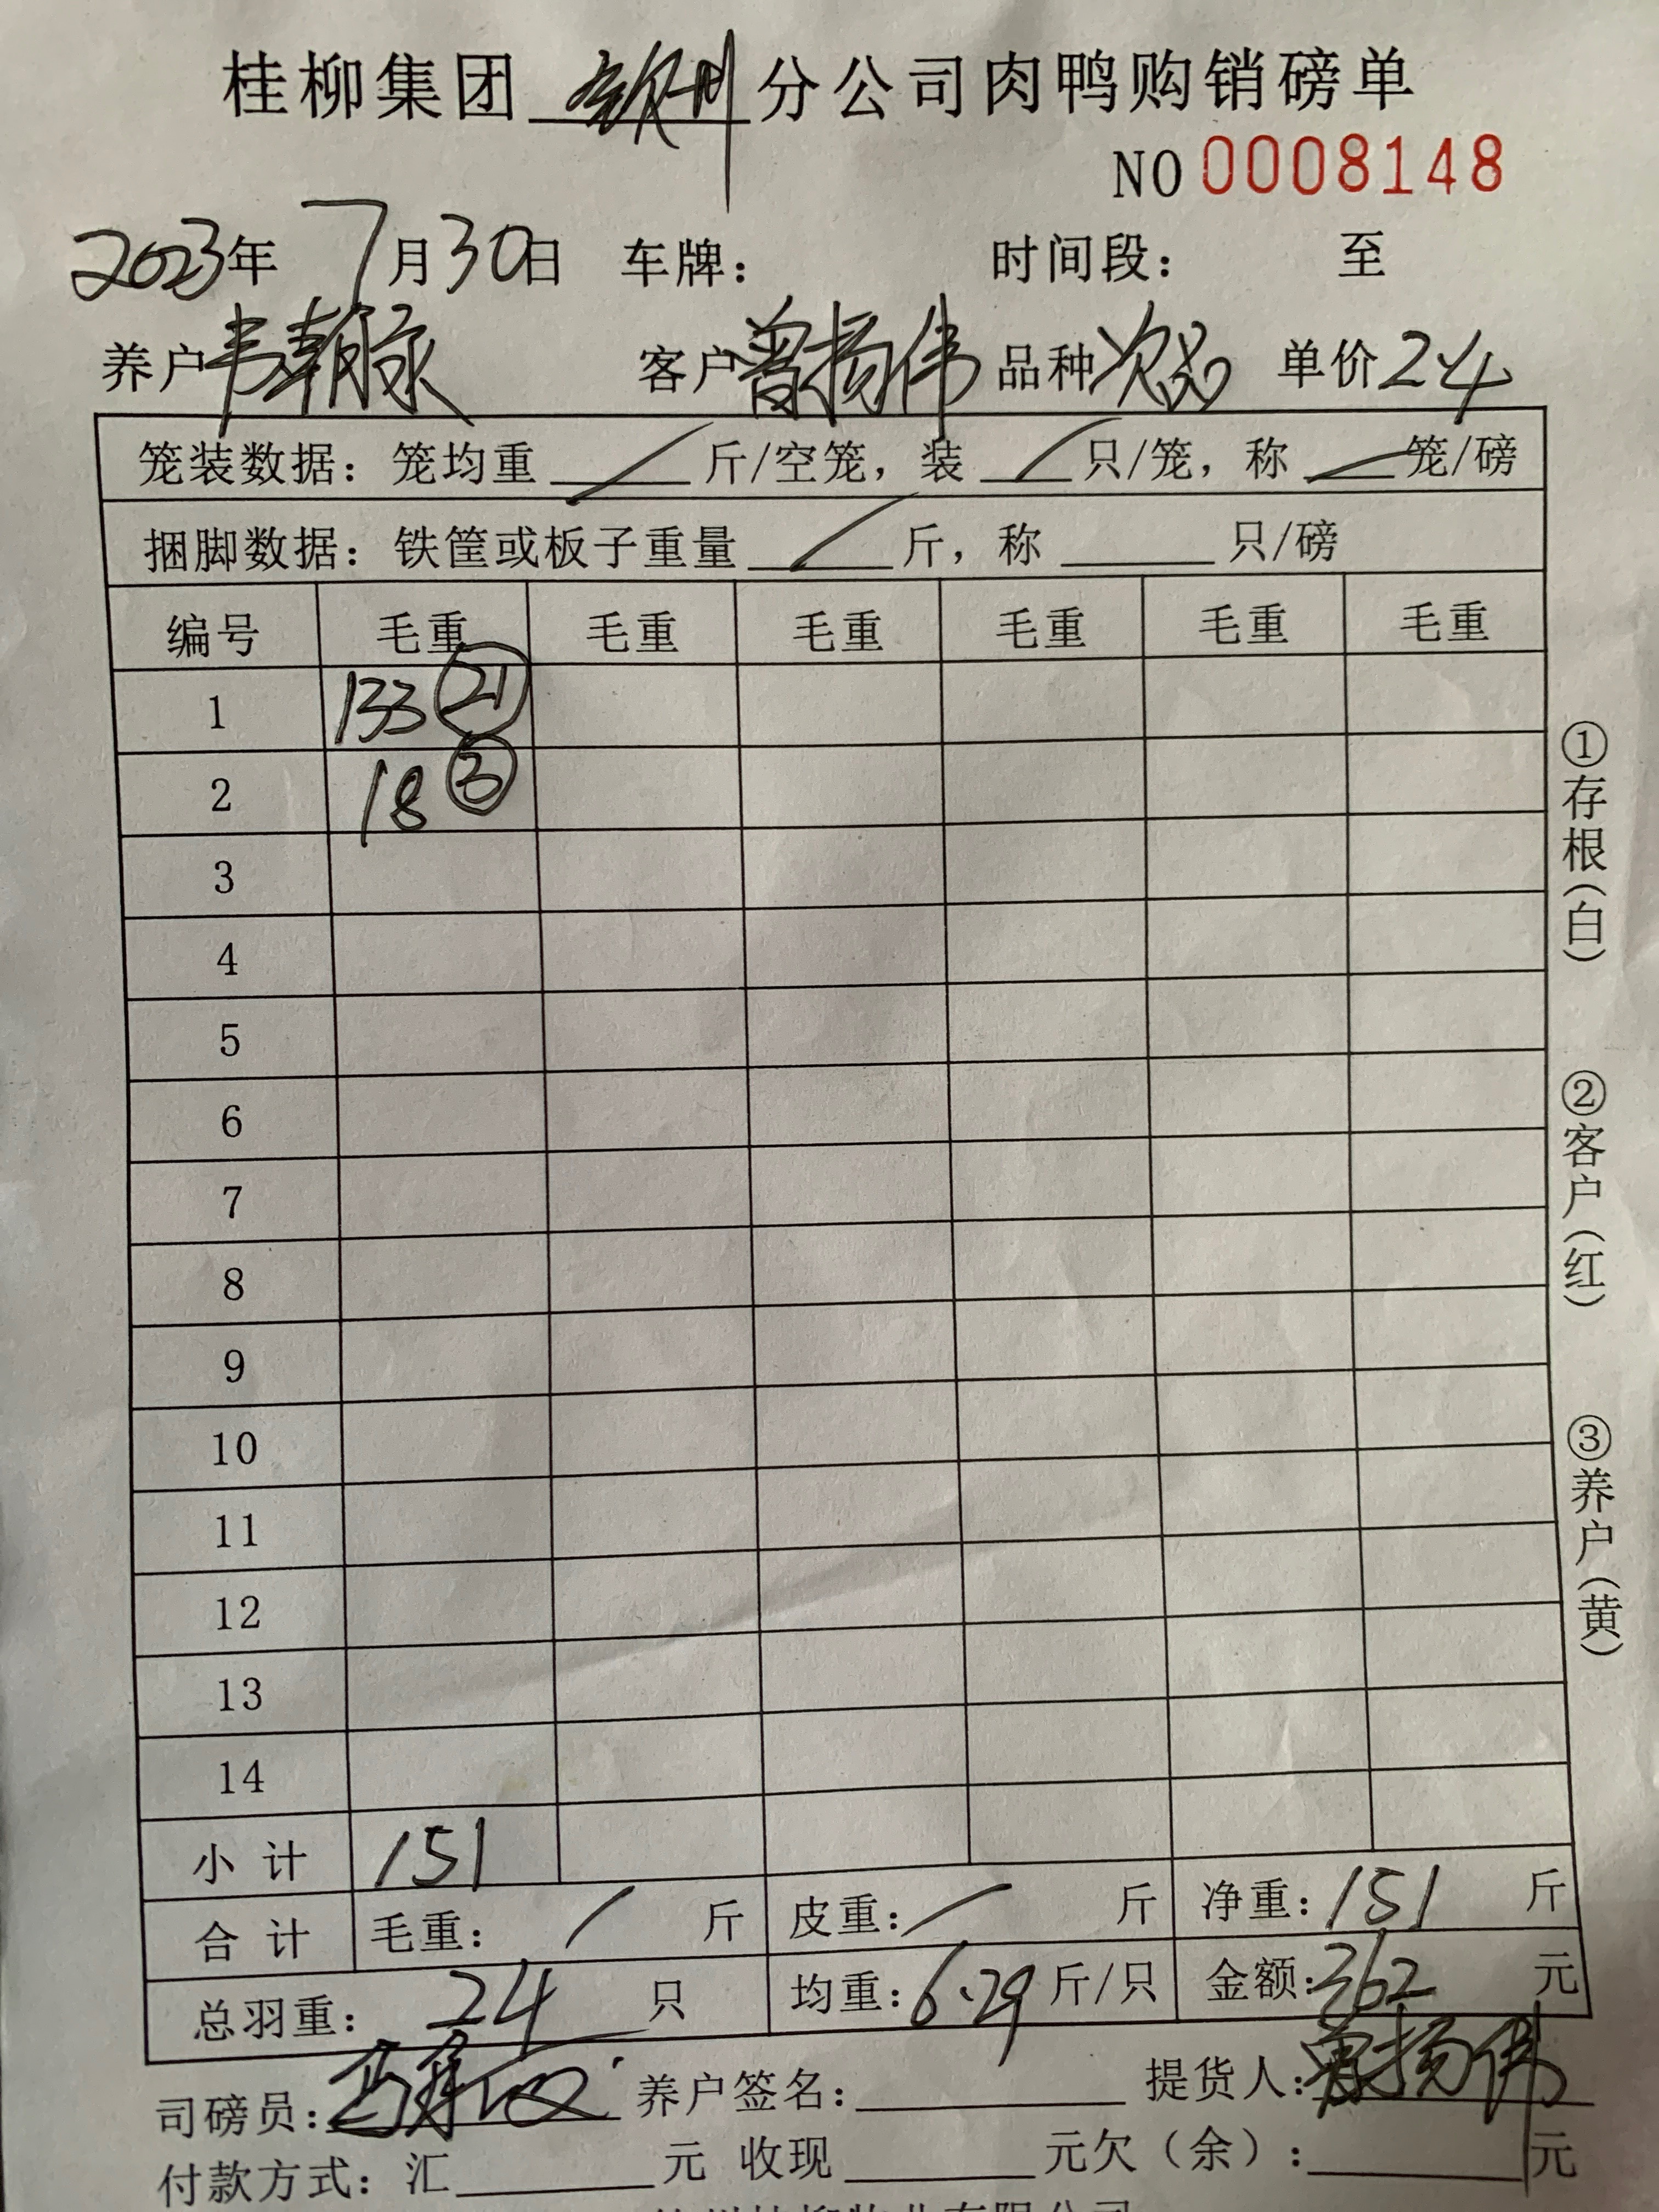 桂柳集团 钦州 分公司肉鸭购销磅单
NO 0008148
2023年 7月30日 车牌： 时间段： 至
养户 韦 客户 曾扬伟 品种 次品 单价 2.4
笼装数据：笼均重 / 斤/空笼，装 / 只/笼，称 / 笼/磅
捆脚数据：铁筐或板子重量 / 斤，称 只/磅
编号 毛重 毛重 毛重 毛重 毛重 毛重
1 133 ㉑
2 18 ③
3
4
5
6
7
8
9
10
11
12
13
14
小计 151
合计 毛重： / 斤 皮重： / 斤 净重：151 斤
总羽重： 24 只 均重：6.29 斤/只 金额：362 元
司磅员： 养户签名： 提货人：曾扬伟
付款方式：汇 元 收现 元欠（余）： 元
①存根（白）
②客户（红）
③养户（黄）